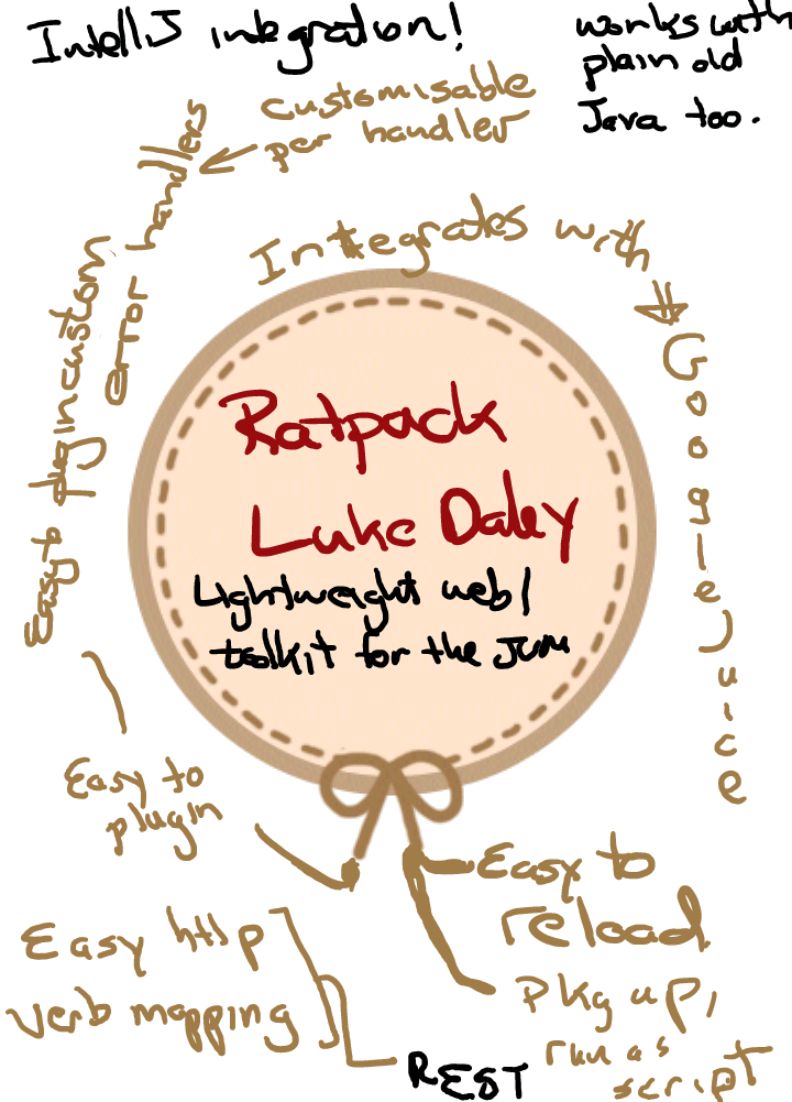 IntelliJ integration!
works with
plain old
Java too.
customisable
per handler
Easy to plug in custom
error handlers
Integrates with
Google Juice
Ratpack
Luke Daley
Lightweight web/
toolkit for the JVM
Easy to
plugin
Easy to
reload
Easy http
verb mapping
REST
Pkg up,
run as
script